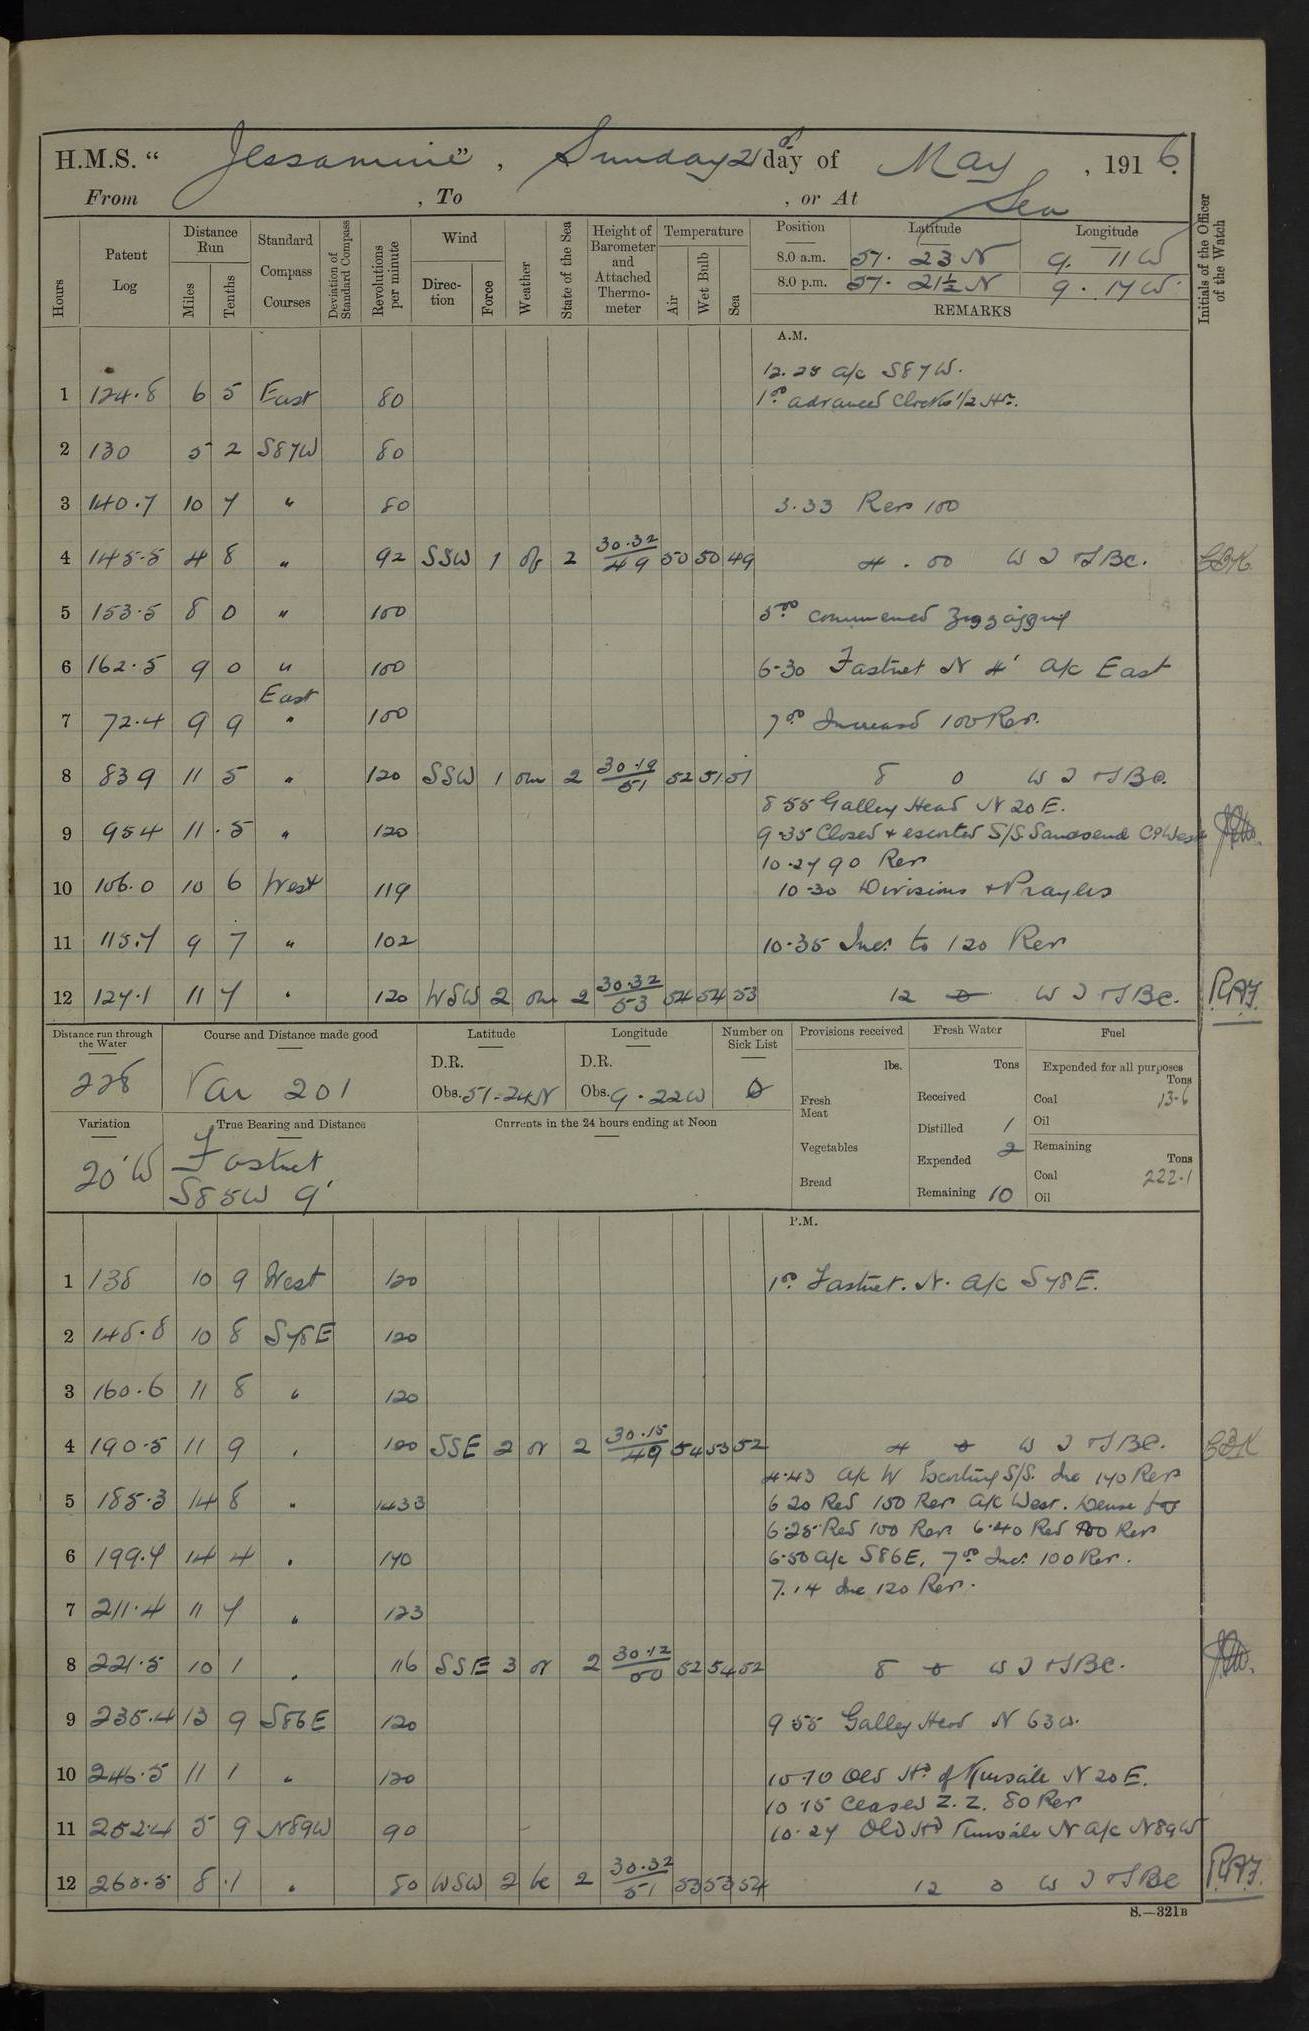 H.M.S. “ Jessamine ” , Sunday 21st day of May , 1916.
From , To , or At Sea
Hours
Patent Log
Distance Run
Miles
Tenths
Standard Compass Courses
Deviation of Standard Compass
Revolutions per minute
Wind
Direction
Force
Weather
State of the Sea
Height of Barometer and Attached Thermometer
Temperature
Air
Wet Bulb
Sea
Position
Latitude
Longitude
8.0 a.m. 51. 23 N 9. 11 W
8.0 p.m. 51. 21½ N 9. 17 W.
REMARKS
Initials of the Officer of the Watch
A.M.
12.28 a/c S87W.
1 124.8 6 5 East 80 1.00 advanced Clocks 1/2 Hr.
2 130 5 2 S87W 80
3 140.7 10 7 " 80 3.33 Rev 100
4 145.5 4 8 " 92 SSW 1 2 30.32/49 50 50 49 4.00
5 153.5 8 0 " 100 5.00 commenced Zigzagging
6 162.5 9 0 " 100 6-30 Fastnet N 4' a/c East
East
7 72.4 9 9 " 100 7.00 Increased 100 Rev.
8 839 11 5 " 120 SSW 1 om 2 30.19/51 52 51 51 8 0
8 55 Galley Head N 20 E.
9 954 11 .5 " 120 9.35 Closed & escorted S/S Sandsend Co West
10.27 90 Rev
10 106.0 10 6 West 119 10-30 Divisions & Prayers
11 115.7 9 7 " 102 10-35 Inc. to 120 Rev
12 127.1 11 7 " 120 WSW 2 om 2 30.32/53 54 54 53 12 0
Distance run through the Water
228
Course and Distance made good
Var 201
Latitude
D.R.
Obs. 51-24N
Longitude
D.R.
Obs. 9.22W
Number on Sick List
0
Provisions received
lbs.
Fresh Meat
Vegetables
Bread
Fresh Water
Tons
Received
Distilled 1
Expended 2
Remaining 10
Fuel
Expended for all purposes
Tons
Coal 13-6
Oil
Remaining
Tons
Coal 222.1
Oil
Variation
20°W
True Bearing and Distance
Fastnet
S85W 9'
Currents in the 24 hours ending at Noon
P.M.
1 138 10 9 West 120 1.00 Fastnet. N. a/c S78E.
2 148.8 10 8 S78E 120
3 160.6 11 8 " 120
4 190.5 11 9 " 120 SSE 2 or 2 30.15/49 54 53 52 4 0
4.43 a/c W Escorting S/S. Inc 140 Rev
5 185.3 14 8 " 1433 6 20 Red 150 Rev a/c West. Dense fog
6.25 Red 100 Rev 6.40 Red 80 Rev
6 199.7 14 4 " 140 6.50 a/c S86E, 7.00 Inc. 100 Rev.
7.14 Inc 120 Rev.
7 211.4 11 7 " 123
8 221.5 10 1 " 116 SSE 3 or 2 30.12/50 52 54 52 8 0
9 235.4 13 9 S86E 120 9 55 Galley Head N 63W.
10 246.5 11 1 " 120 10.10 Old Hd of Kinsale N 20 E.
10 15 Ceased Z.Z. 80 Rev
11 252.4 5 9 N89W 90 10.27 Old Hd Kinsale N a/c N89W
12 260.5 8 .1 " 80 WSW 2 bc 2 30.32/51 53 53 52 12 0
S.—321B